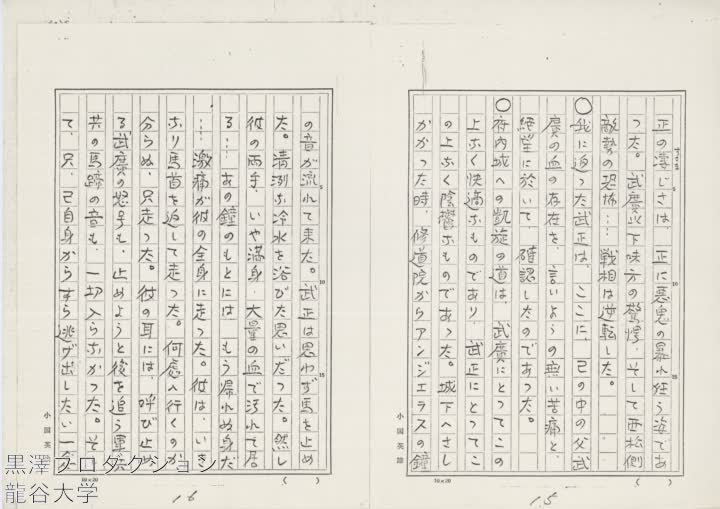 正の凄じさは、正に悪鬼の暴れ狂う姿であ
すさま
った。武廣以下味方の驚愕、そして西松側
敵勢の恐怖……戦相は逆転した。
○我に返った武正は、ここに、己の中の父武
廣の血の存在を、言いようの無い苦痛と、
絶望に於いて、確認したのであった。
○府内城への凱旋の道は、武廣にとってこの
上ふく快適ふものであり、武正にとってこ
の上ふく陰鬱ふものであった。城下へさし
かかった時、修道院からアンジェラスの鐘
小国英雄
10×20
15
の音が流れて来た。武正は思わず馬を止め
た。清冽ふ冷水を浴びた思いだった。然し
彼の両手、いや満身、大量の血で汚れて居
る…あの鐘のもとには、もう帰れぬ身だ
……激痛が彼の全身に走った。彼は、いき
ふり馬首を返して走った。何處へ行くのか
分らぬ、只走った。彼の耳には、呼び止め
る武廣の怒号も、止めようと後を追う軍兵
共の馬蹄の音も、一切入らふかった。そし
て、只、己自身からすら逃げ出したい一念
小国英雄
10×20
16
黒澤プロダクション
龍谷大学